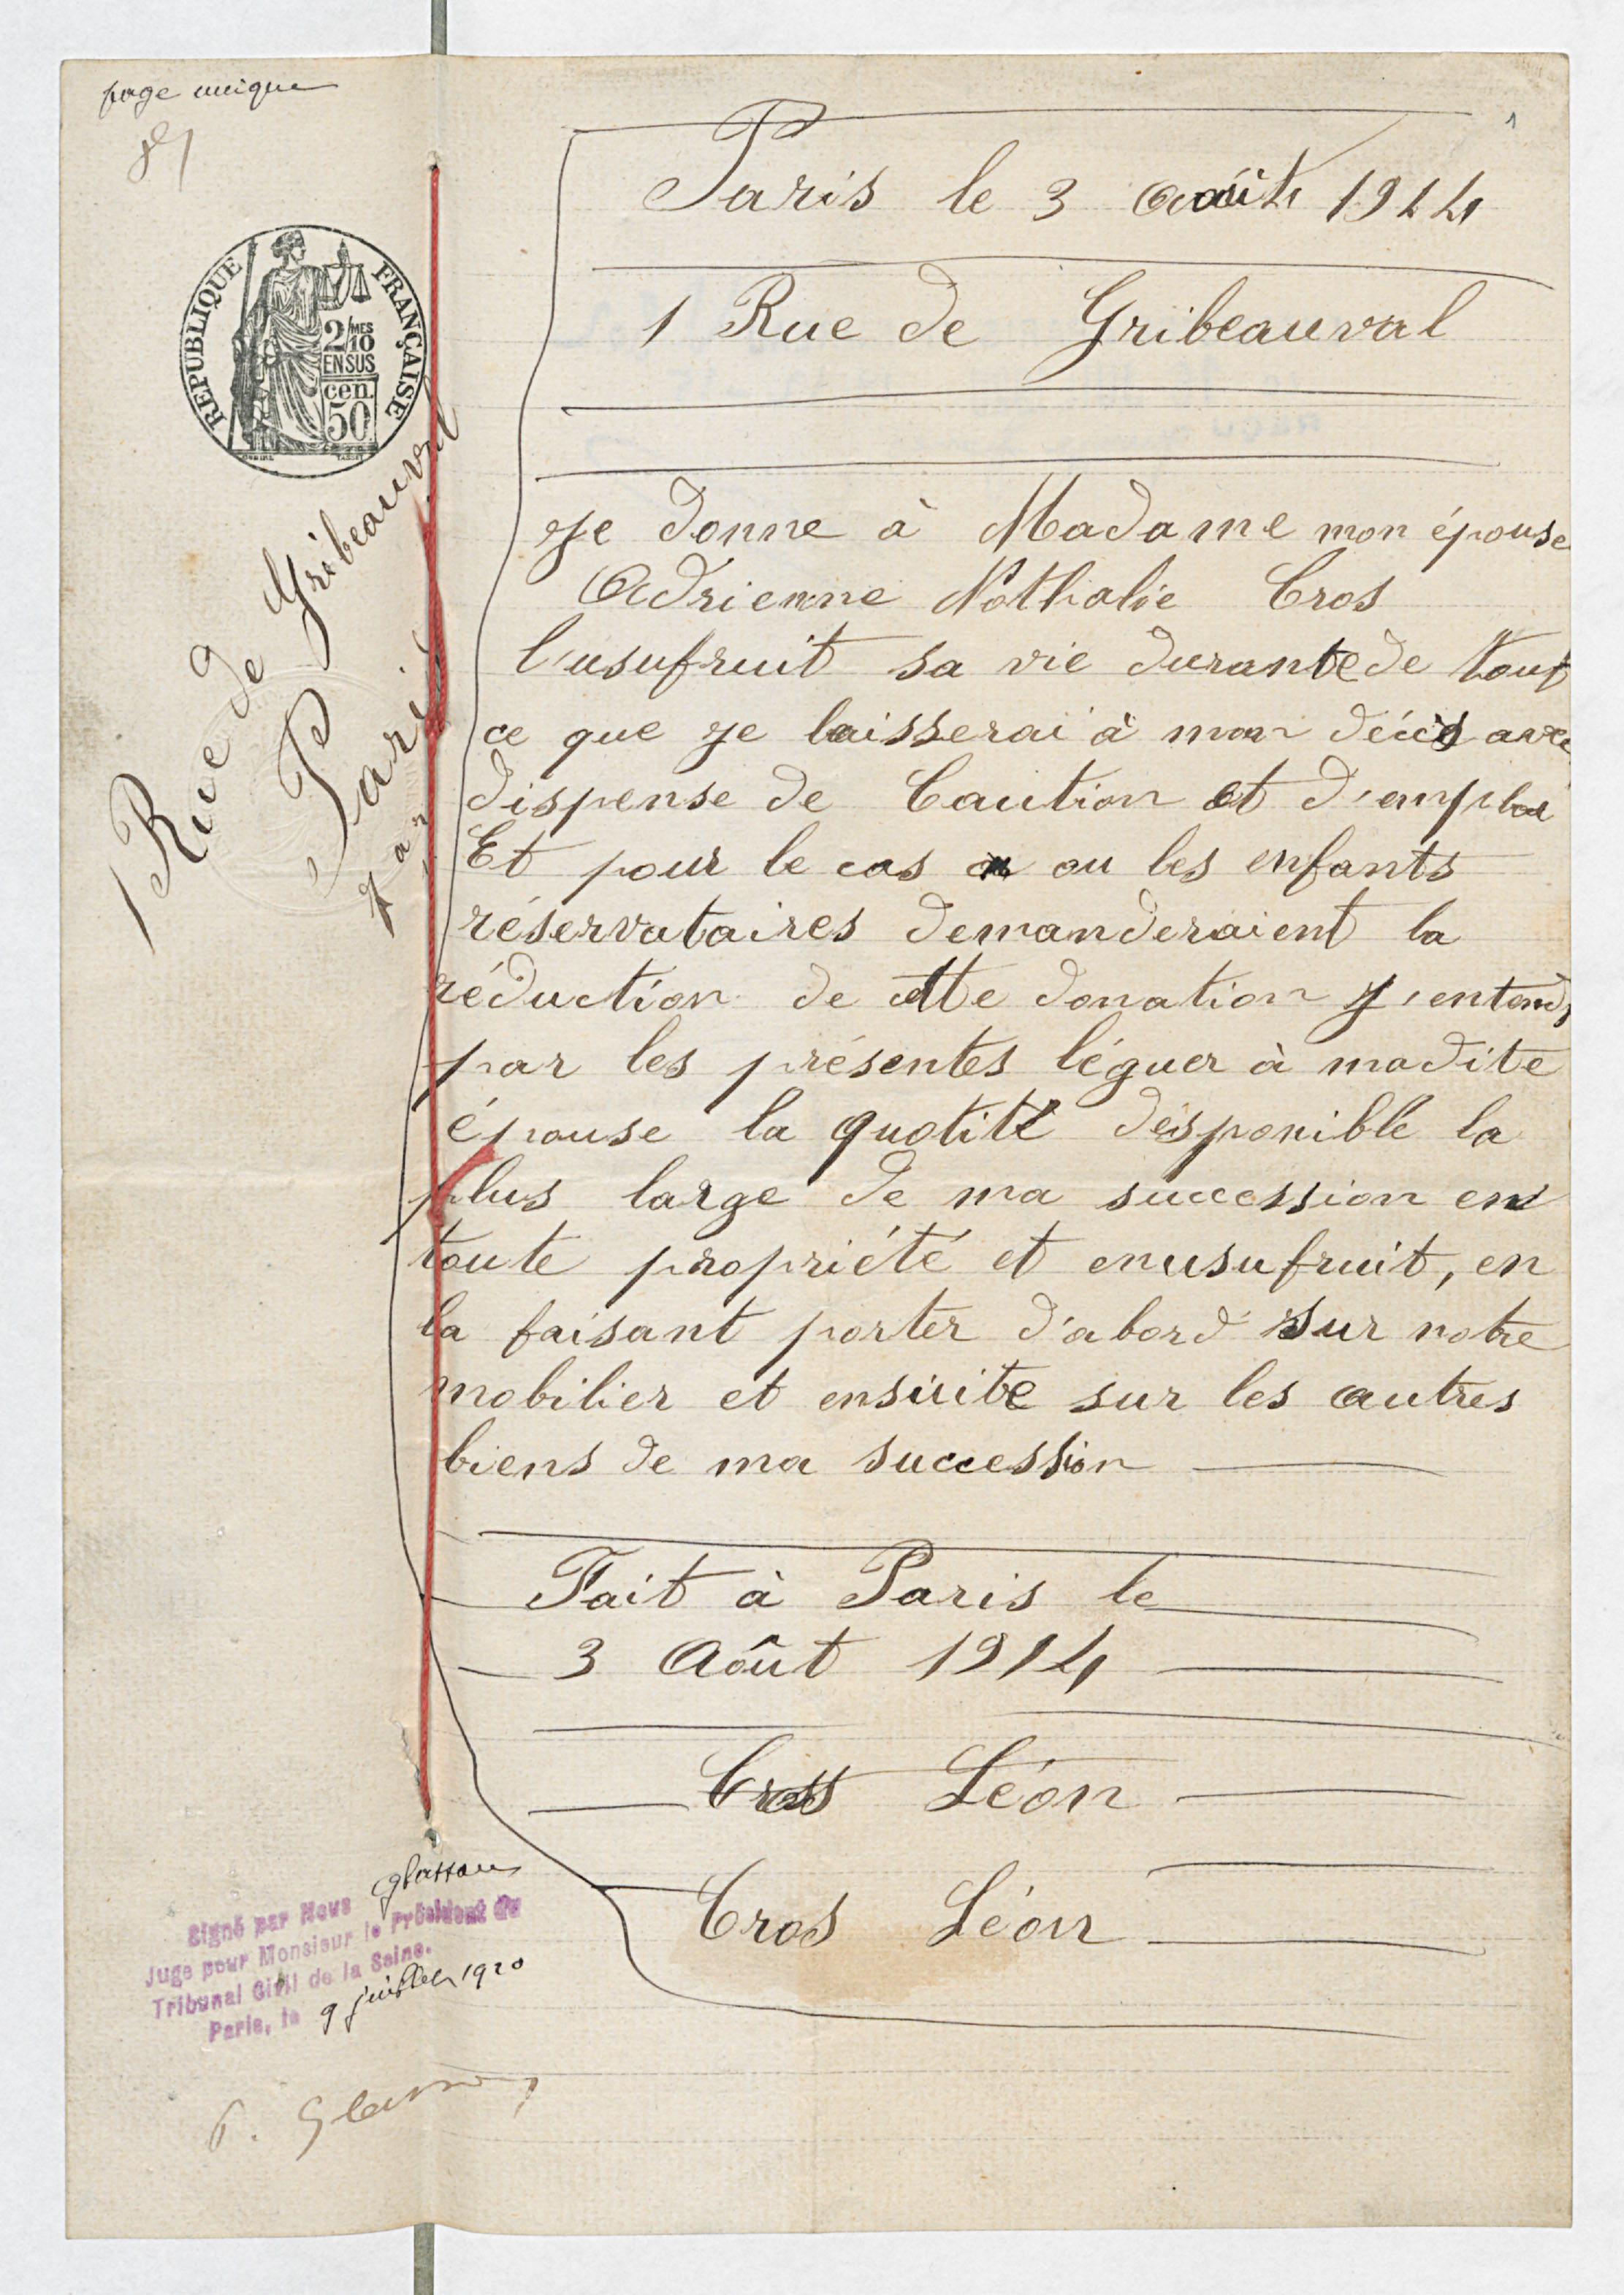 page unique
1
Paris le 3 août 1914
1 Rue de Gribeauval
RÉPUBLIQUE FRANÇAISE
2/MES
10
EN SUS
cen.
50
1 Rue de Gribeauval
Paris
Je donne à Madame mon épouse
Adrienne Nathalie Cros
l'usufruit sa vie durante de tout
ce que je laisserai à mon décès avec
dispense de Caution et d'emploi
Et pour le cas ou les enfants
réservataires demanderaient la
réduction de cette donation j'entends
par les présentes léguer à madite
épouse la quotité disponible la
plus large de ma succession en
toute propriété et en usufruit, en
la faisant porter d'abord sur notre
mobilier et ensuite sur les autres
biens de ma succession
Fait à Paris le
3 Août 1914
Cros Léon
Cros Léon
Signé par Nous Glasson
Juge pour Monsieur le Président du
Tribunal Civil de la Seine.
Paris, le 9 juillet 1920
P. Glasson